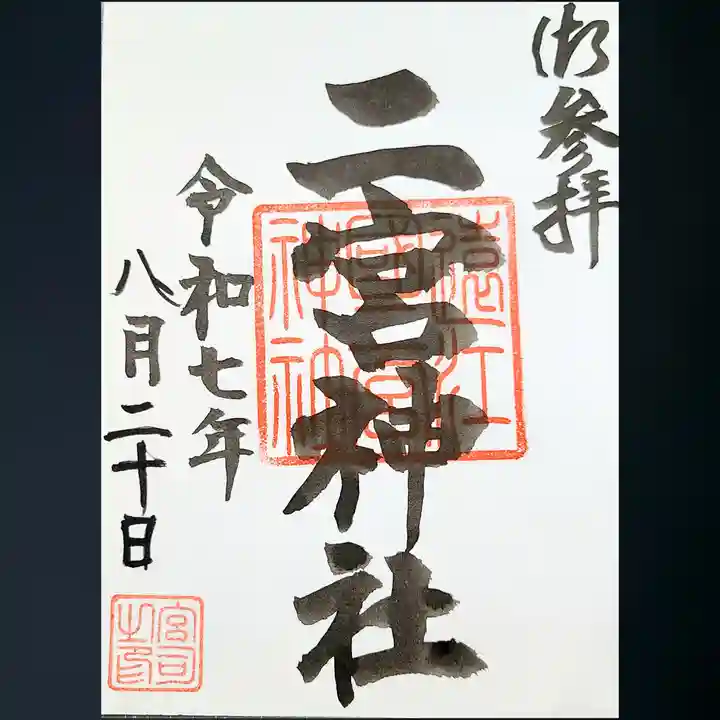 御参拝
二宮神社
令和七年
八月二十日
宮司之印